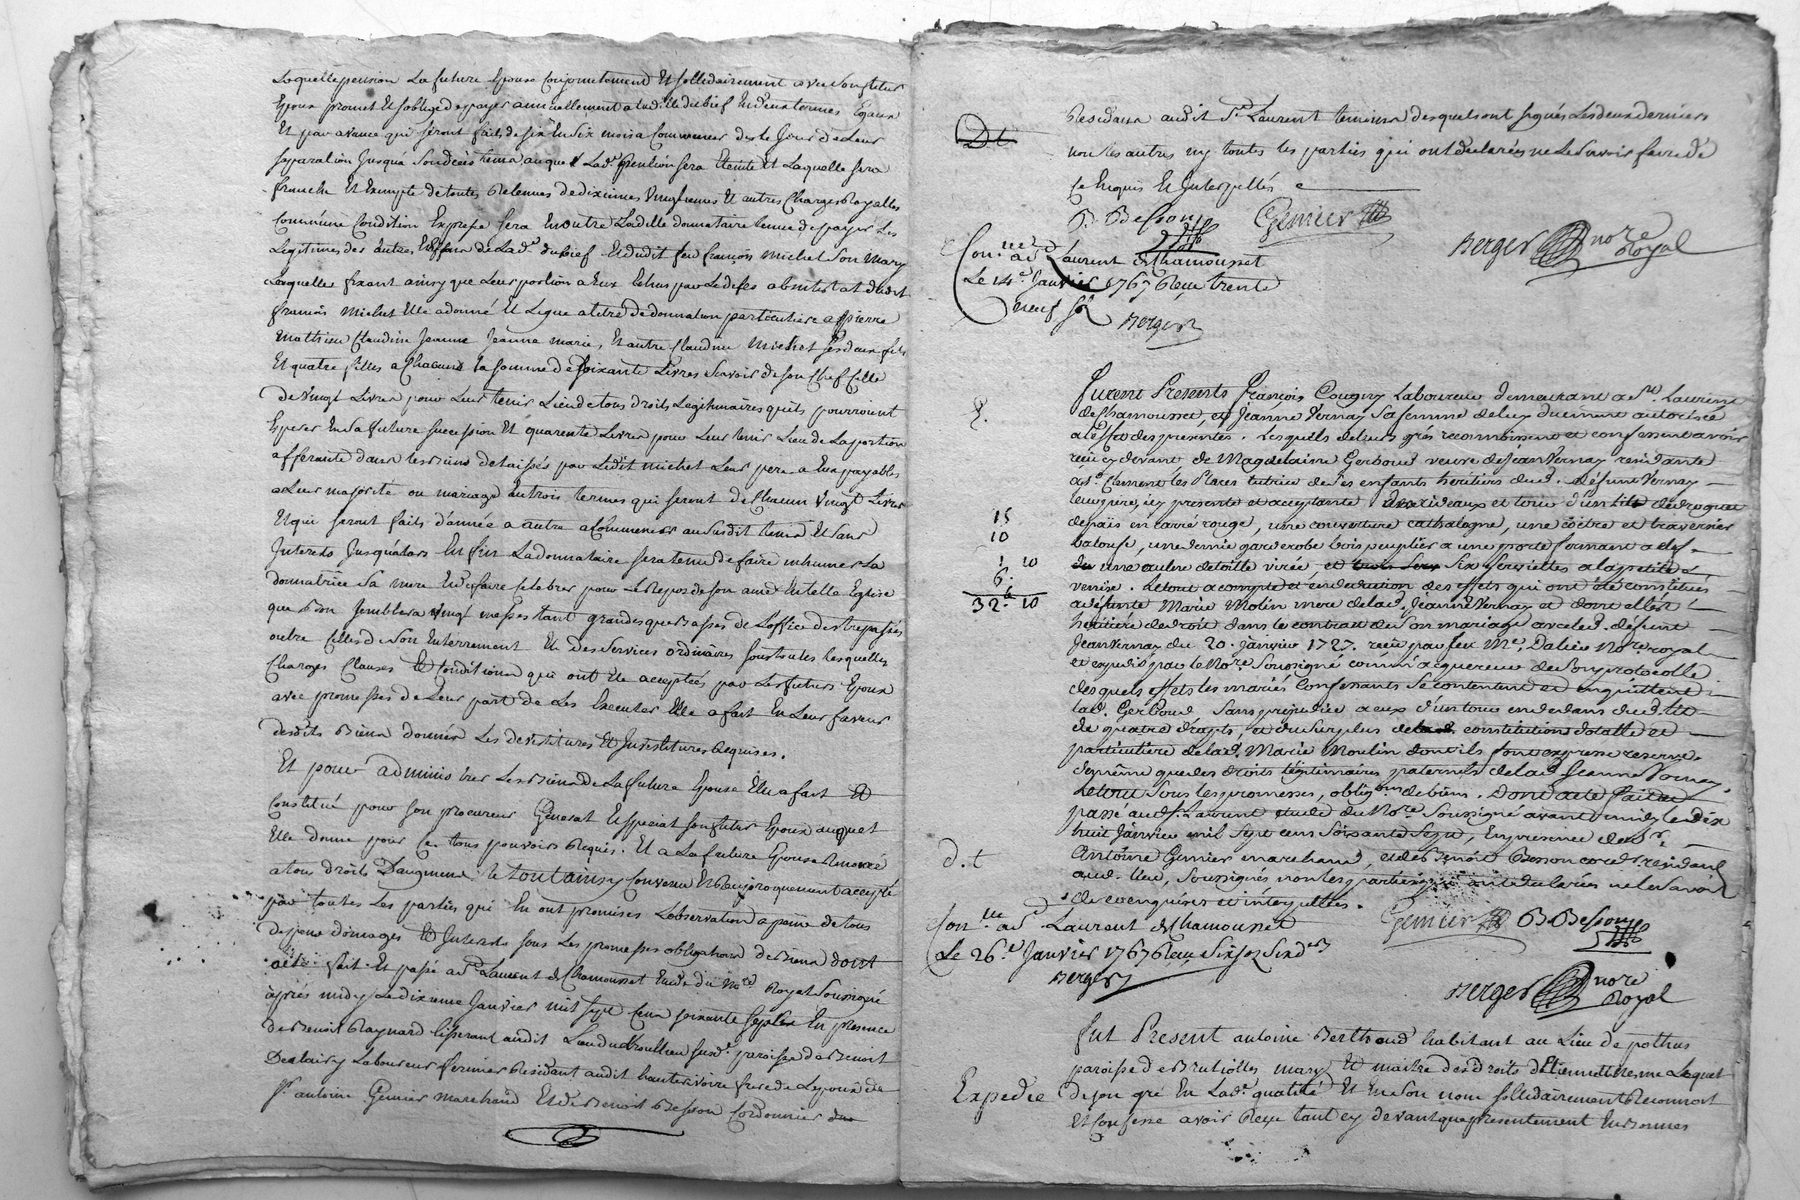 Laquelle pension La future Epouse Conjointement Et sollidairement avec Son futur
Epoux promet Et soblige de payer annuellement a ladille dubief En deux termes Egaux
Et par avance qui seront faits de six En six mois a Commencer des le Jour de Leur
separation Jusqua Son déces tems auquel Lad.e pention sera Eteinte Et Laquelle sera
franche Et Exempte de toutes Retenues de dixieme Vingtiemes Et autres Charges Royalles
Comme une Condition Expresse sera En outre Ladille donnataire tenue de payer Les
Legitimes des autres Enfans de Lad.e dubief Et dudit feu françois Michel Son Mary
Lesquelles fixant ainsy que Leur portion a Eux Echus par Le déces abintestat dudit
francois Michel Elle a donné Et Legue a titre de donnation particuliere a pierre
Matthieu Claudine Jeanne Jeanne Marie, Et autre Claudine Michel Ses deux fils
Et quatre filles a Chacune la somme de soixante Livres Scavoir de son Chef Celle
de Vingt Livres pour Leur tenir Lieu de tous droits Legitimaires quils pourroient
Esperer En sa future succession Et quarente Livres pour Leur tenir Lieu de La portion
afferante dans les Biens delaissés par Ledit Michel Leur pere a Eux payables
a Leur majorité ou mariage En trois termes qui seront de Chacun Vingt Livres
Et qui seront faits d'année a autre a Commencer au susdit tems Et sans
Interets Jusqu'alors En fin La donnataire sera tenue de faire inhumer La
donnatrice Sa mere Et de faire Celebrer pour Le Repos de son ame En telle Eglise
que Bon semblera Vingt messes tant grandes que Basses de L'office des trepassés
outre Celles de Son Enterrement Et des Services ordinaires sous toutes lesquelles
Charges Clauses Et Conditions qui ont Eté acceptées par Les futurs Epoux
avec promesses de Leur part de Les Executer Elle a fait En Leur faveur
desdits Biens donnés Les devestitures Et Investitures Requises.
Et pour administrer Les Biens de La future Epouse Elle a fait Et
Constitué pour son procureur Général Et special son futur Epoux auquel
Elle donne pour Ce tous pouvoirs Requis. Et a La future Epouse Renoncé
a tous droits Daugment le tout ainsy Convenu Et Reciproquement accepté
par toutes Les parties qui En ont promises L'observation a peine de tous
depens domages Et Interets sous Les promesses obligations de Biens dont
acte fait Et passé a S.t Laurent de Chamousset Etude du No.re Royal Soussigné
après midy Le dixieme Janvier mil sept Cens soixante sept En presence
de Benoit Raynard tisserant audit Lieu susd. paroisse de Benoit
Laboureur fermier Residant audit
S.r antoine Genier Marchand Et de Benoit Besson Cordonnier
Residans audit S.t Laurent temoins desquels ont signés Les deux derniers
non les autres ny toutes les parties qui ont declarées ne Le Scavoir faire de
Ce Enquis Et Interpellés
B. Besson Genier
Berger no.re Royal
Con.lle a S.t Laurent de Chamousset
Le 14.e Janvier 1767 Reçu trente
neuf sol
Berger
Furent Presents François Cougny Laboureur demeurant a S.t Laurent
de Chamousset, et Jeanne Vernay sa femme de luy duement autorisée
a l'effet des presentes. lesquels de leurs grés reconnoissent et confessent avoir
reçu cy devant de Magdelaine Gerboud veuve de Jean Vernay residante
a S.t Clement les Places tutrice de ses enfants heritiers dud. défunt Vernay
leur pere, icy presente et acceptante deux rideaux et tour d'un lit de droguet
depais en carré rouge, une couverture cathalogne, une coëtre et traversier
15
10
1 10
6.
32 - 10
batouse, une demie garderobe bois peuplier a une porte fermant a clef
une aulne de toille virée et six serviettes a la petite
venise. Le tout a compte et en deduction des effets qui ont été constitués
a défunte Marie Molin mere de lad. Jeanne Vernay et dont elle est
heritiere de droit dans le contrat de son mariage avec led. défunt
Jean Vernay du 20. janvier 1727. reçu par feu M.e Dalier No.re royal
et expedié par le No.re Soussigné comme acquereur de son protocolle
desquels effets les mariés Confessants se contentent et en quittent
lad. Gerboud Sans prejudice a eux d'un tour en dedans dud. lit
de quatre draps, et du surplus de constitution dotalle et
particuliere de lad. Marie Moulin dont ils font expresse reserve.
de même que des droits légitimaires paternels de lad. Jeanne Vernay
Le tout sous les promesses, oblig.ons de biens. Dont acte fait et
passé aud. S.t Laurent etude du No.re Soussigné avant midy le dix
huit Janvier mil sept cens soixante sept, En presence de S.r
d.t
Antoine Genier marchand, et de Benoit Besson cord.r residans
aud. lieu, Soussignés non les parties qui ont declarées ne le Savoir
de ce enquises et interpellées.
Genier B. Besson
Con.lle a S.t Laurent de Chamousset
Le 26.e Janvier 1767 Reçu Six sol Six d.ers
Berger
Berger no.re Royal
Fut Present antoine Berthoud habitant au Lieu de pothus
paroisse de Bruliolles mary Et maitre des droits d'Etiennette Lequel
Expedie
de son gré En Lad.e qualité Et En son nom sollidairement Reconnoit
et Confesse avoir Reçu tant cy devant que presentement En Bonnes